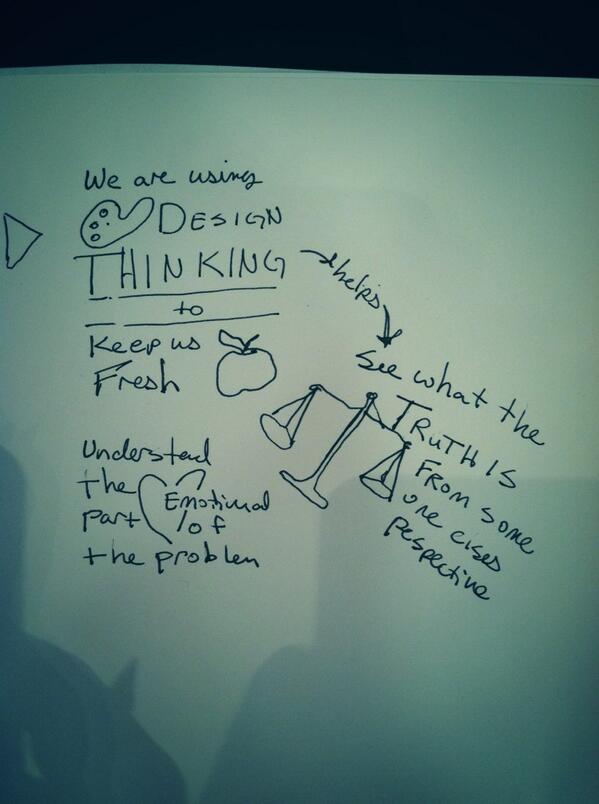 We are using
DESIGN
THINKING
to
Keep us
Fresh
helps
see what the
TRUTH IS
FROM some
one elses
pespective
Understad
the
Emotional
part of
the problem